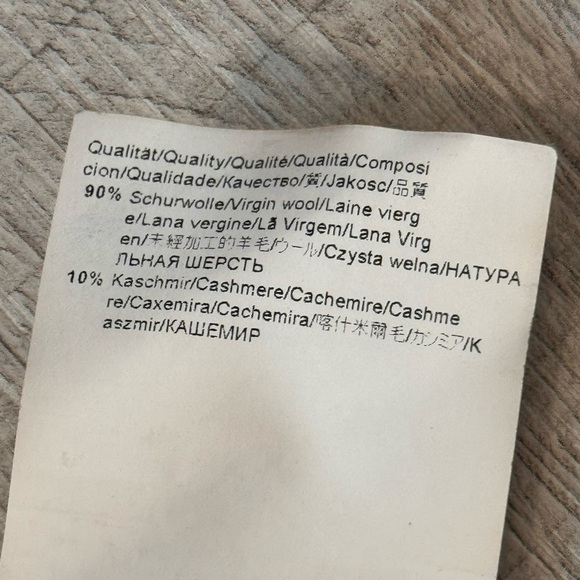 Qualität/Quality/Qualité/Qualità/Composi
cion/Qualidade/Качество/質/Jakosc/品質
90% Schurwolle/Virgin wool/Laine vierg
e/Lana vergine/Lã Virgem/Lana Virg
en/未經加工的羊毛/ウール/Czysta welna/НАТУРА
ЛЬНАЯ ШЕРСТЬ
10% Kaschmir/Cashmere/Cachemire/Cashme
re/Caxemira/Cachemira/喀什米爾毛/カシミア/K
aszmir/КАШЕМИР